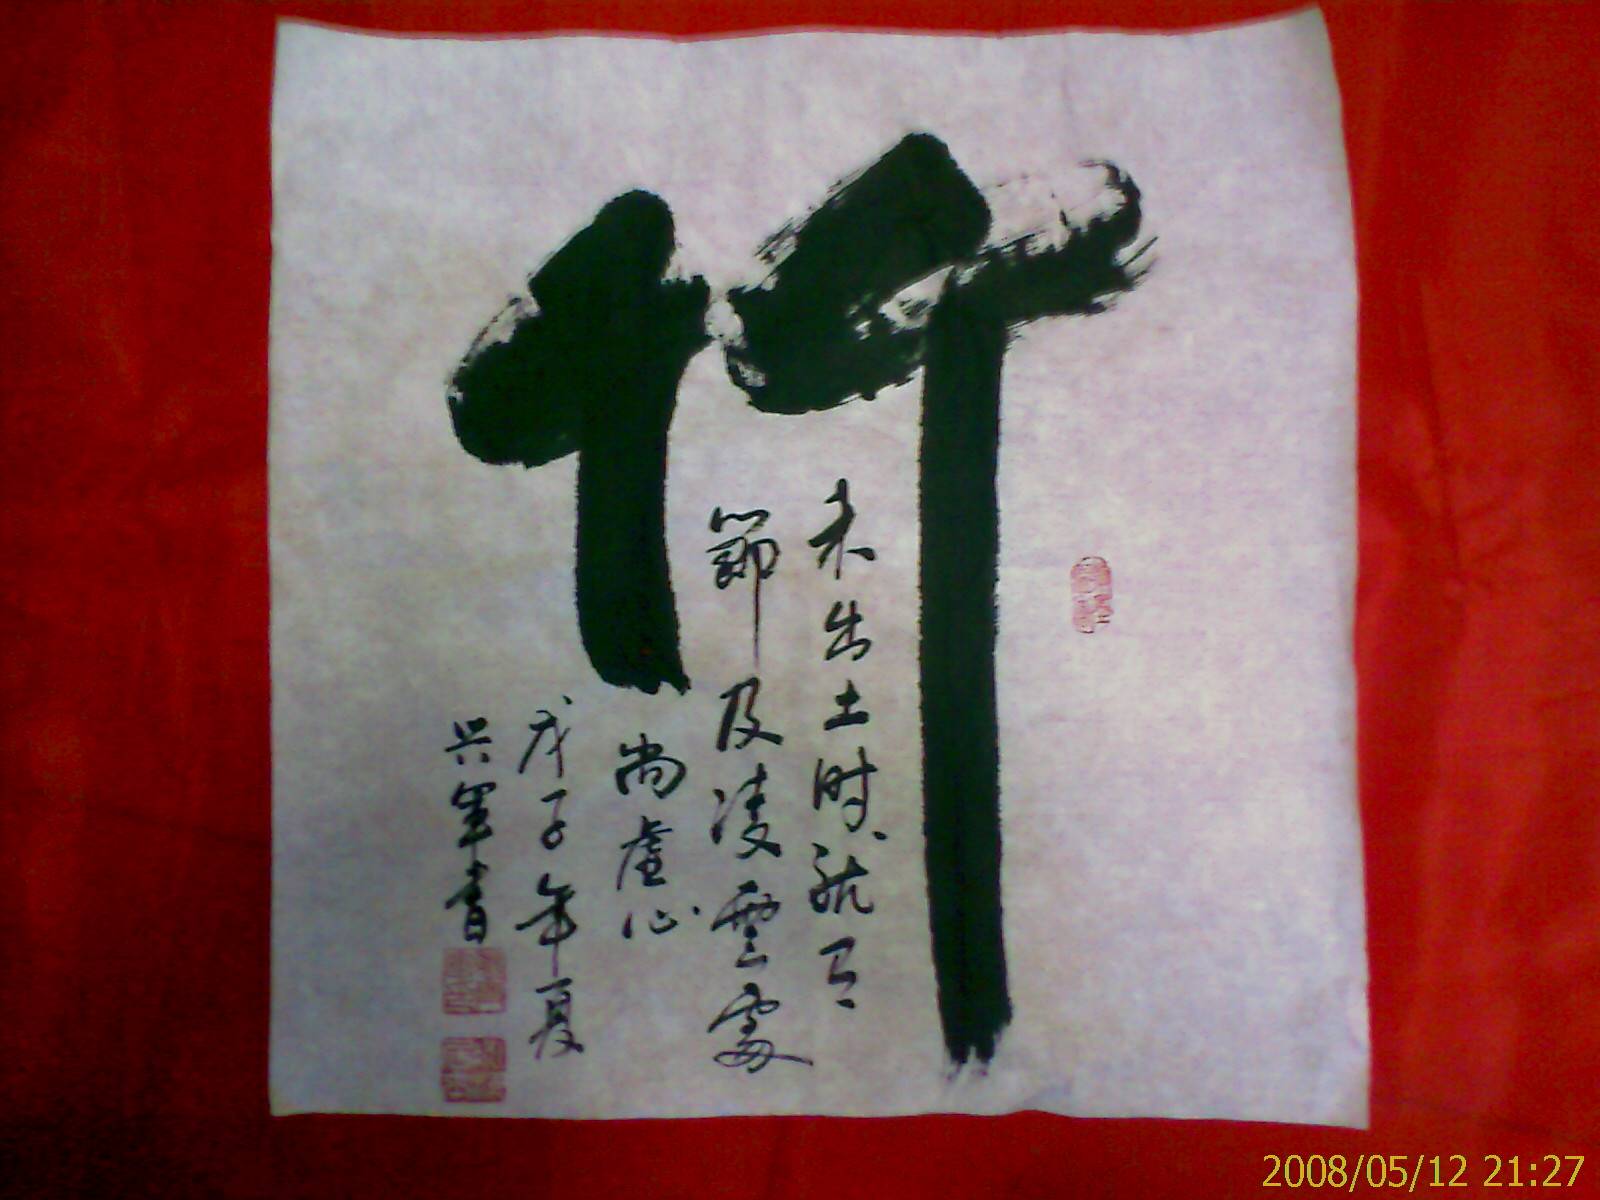 竹
未出土时就有
節及凌雲處
尚虚心
戊子年夏
书
2008/05/12 21:27